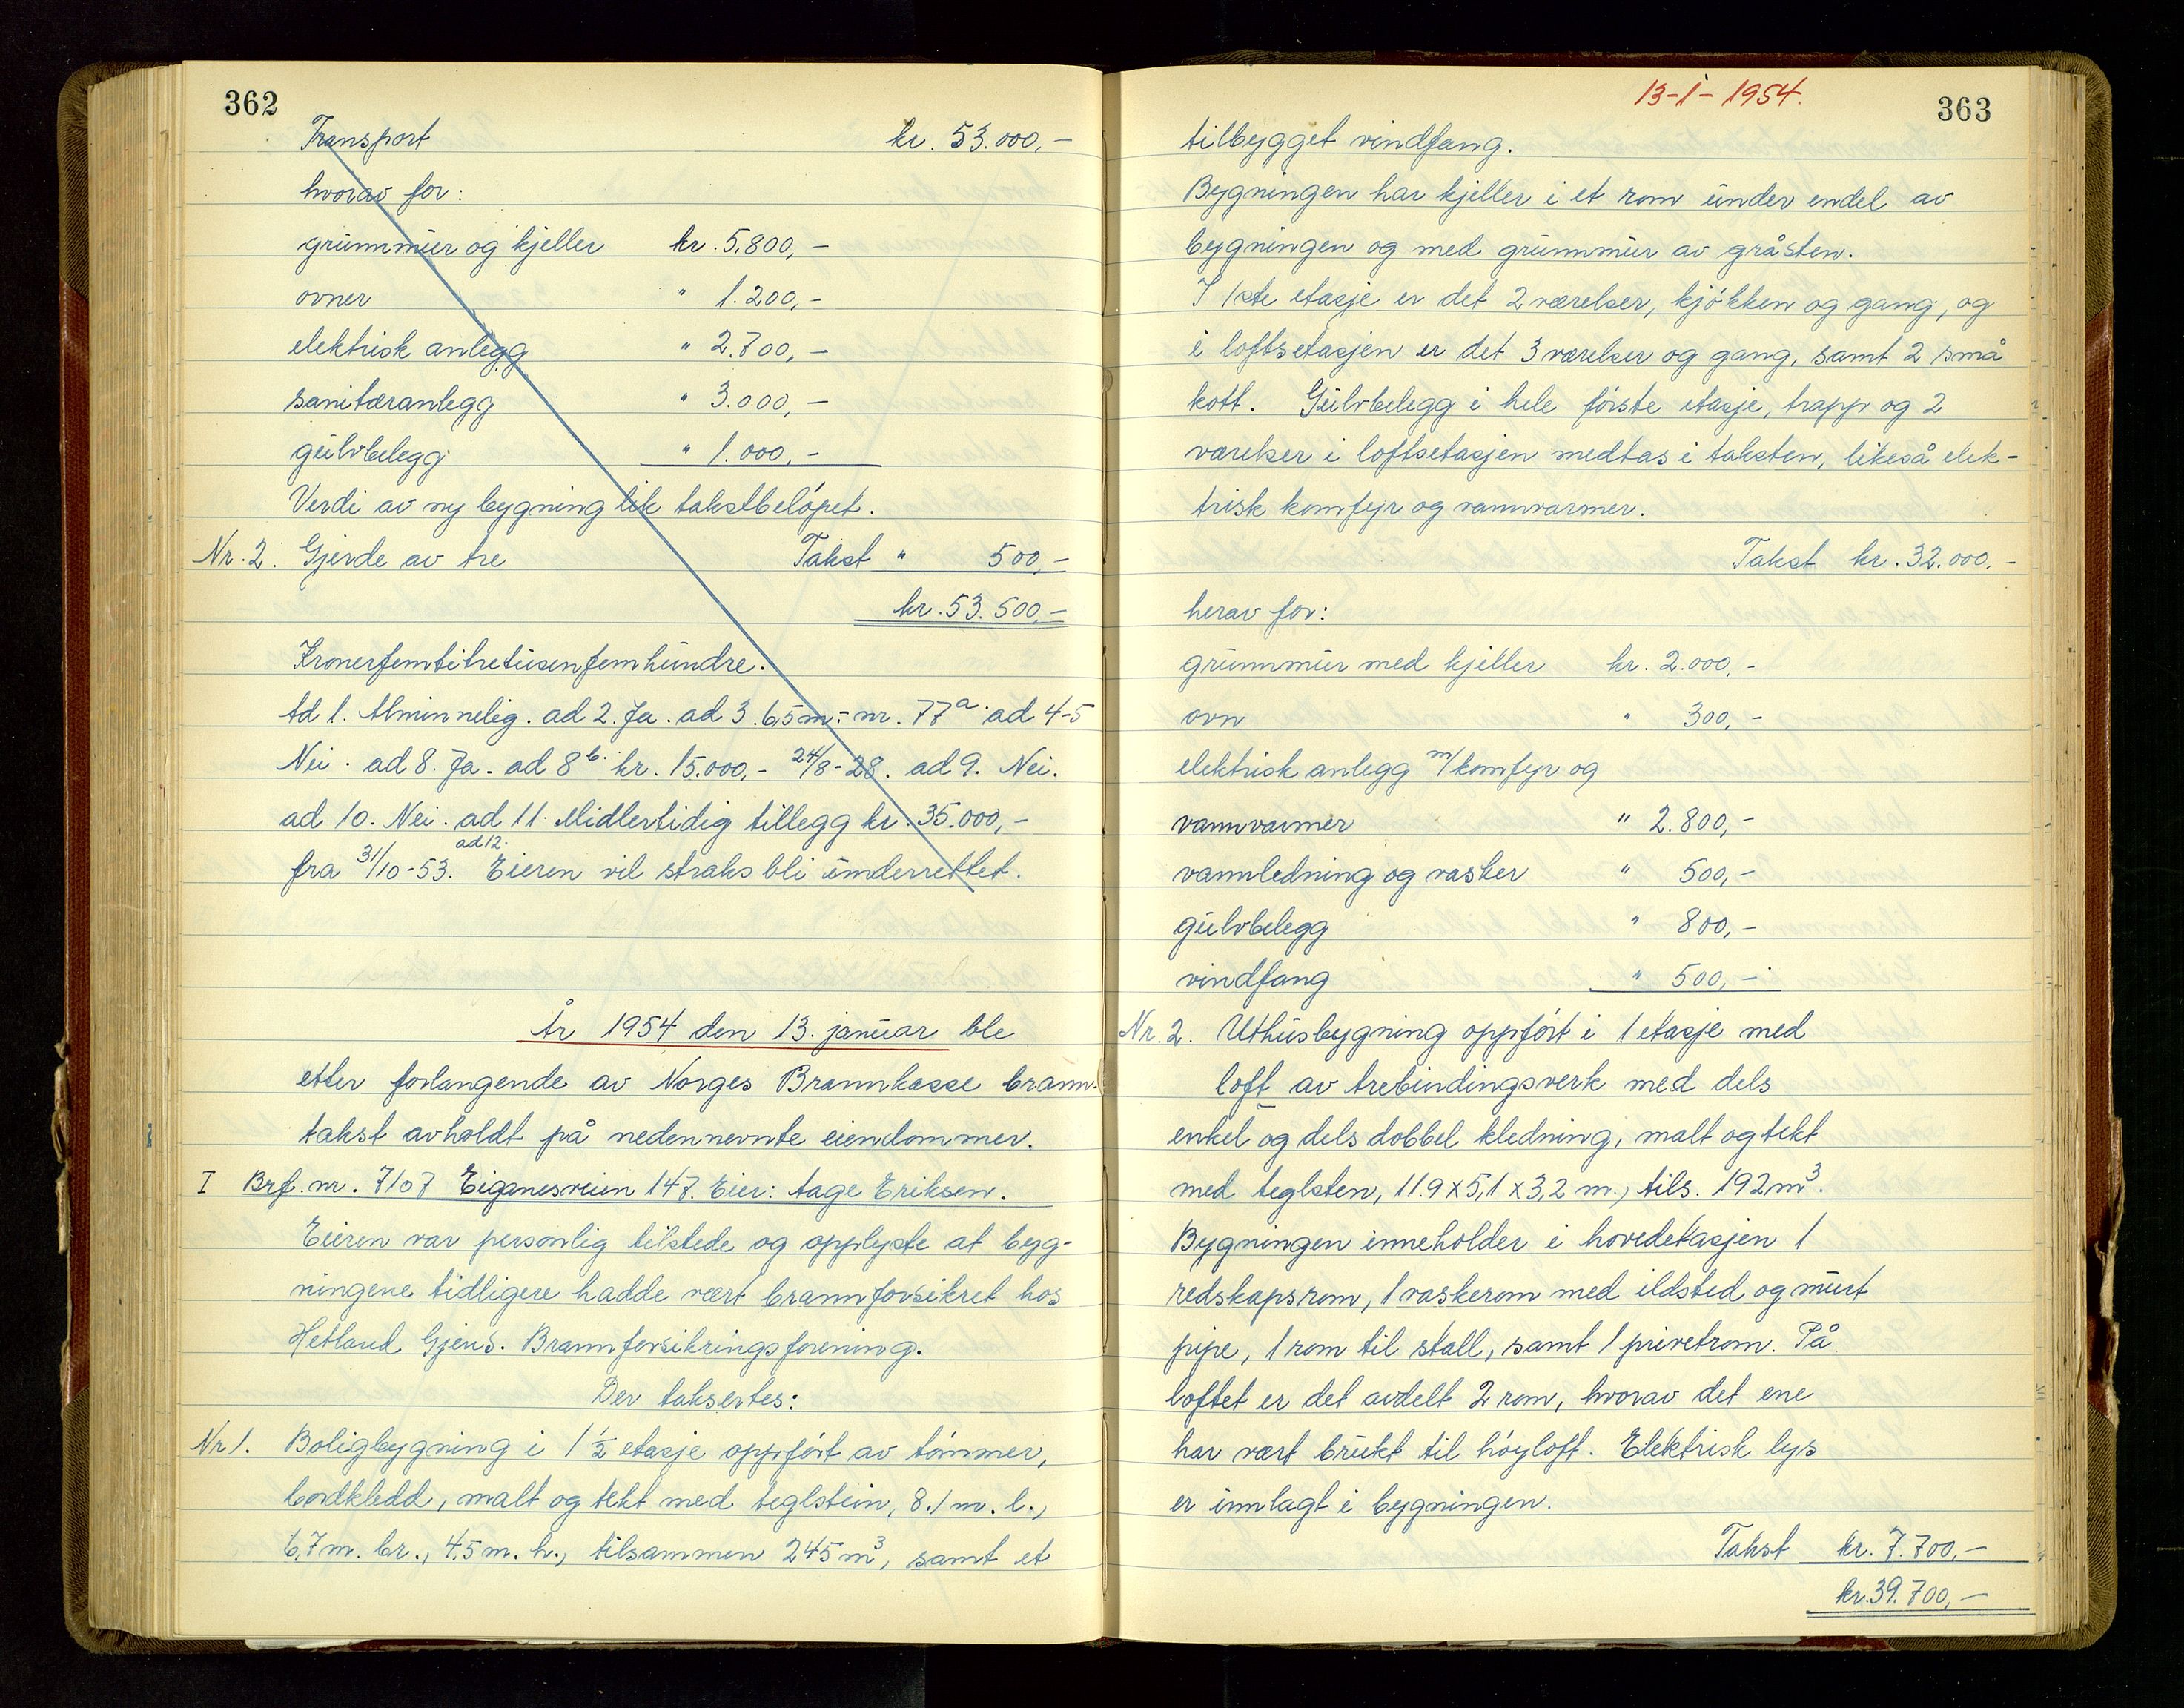 362
Transport kr. 53.000,-
hvorav for:
grunnmur og kjeller kr. 5.800,-
ovner " 1.200,-
elektrisk anlegg " 2.700,-
sanitæranlegg " 3.000,-
gulvbelegg " 1.000,-
Verdi av ny bygning lik takstbeløpet.
Nr. 2. Gjerde av tre Takst " 500,-
kr. 53.500,-
Kronerfemtitretusenfemhundre.
Ad 1. Alminnelig. ad 2. Ja. ad 3. 6,5 m.- nr. 77a. ad 4-5
Nei. ad 8. Ja. ad 8b. kr. 15.000,- 24/8-28. ad 9. Nei.
ad 10. Nei. ad 11. Midlertidig tillegg kr. 35.000,-
fra 31/10-53. ad 12. Eieren vil straks bli underrettet.
År 1954 den 13. januar ble
etter forlangende av Norges Brannkasse brann-
takst avholdt på nedennevnte eiendommer.
I Brf. nr. 7107 Eiganesveien 147. Eier: Aage Eriksen.
Eieren var personlig tilstede og opplyste at byg-
ningene tidligere hadde vært brannforsikret hos
Hetland Gjens. Brannforsikringsforening.
Der taksertes:
Nr 1. Boligbygning i 1 1/2 etasje oppført av tømmer,
bordkledd, malt og tekt med teglstein, 8.1 m. l.,
6,7 m. br., 4,5 m. h., tilsammen 245 m³, samt et
13-1-1954.
363
tilbygget vindfang.
Bygningen har kjeller i et rom under endel av
bygningen og med grunnmur av gråsten.
I 1ste etasje er det 2 værelser, kjøkken og gang, og
i loftsetasjen er det 3 værelser og gang, samt 2 små
kott. Gulvbelegg i hele første etasje, trapp og 2
værelser i loftsetasjen medtas i taksten, likeså elek-
trisk komfyr og vannvarmer.
Takst kr. 32.000,-
herav for:
grunnmur med kjeller kr. 2.000,-
ovn " 300,-
elektrisk anlegg m/komfyr og
vannvarmer " 2.800,-
vannledning og vasker " 500,-
gulvbelegg " 800,-
vindfang " 500,-
Nr. 2. Uthusbygning oppført i 1 etasje med
loft av trebindingsverk med dels
enkel og dels dobbel kledning, malt og tekt
med teglsten, 11.9 x 5,1 x 3,2 m., tils. 192 m³.
Bygningen inneholder i hovedetasjen 1
redskapsrom, 1 vaskerom med ildsted og murt
pipe, 1 rom til stall, samt 1 privetrom. På
loftet er det avdelt 2 rom, hvorav det ene
har vært brukt til høyloft. Elektrisk lys
er innlagt i bygningen.
Takst kr. 7.700,-
kr. 39.700,-